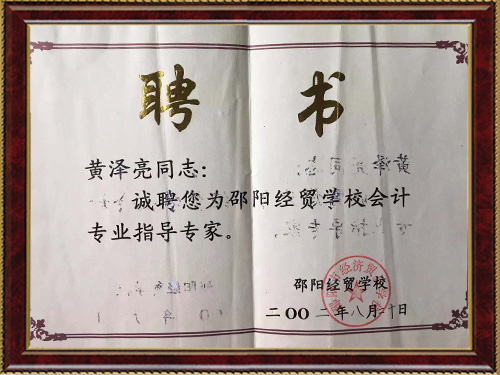 聘书
黄泽亮同志：
诚聘您为邵阳经贸学校会计
专业指导专家。
邵阳经贸学校
二〇〇二年八月十日